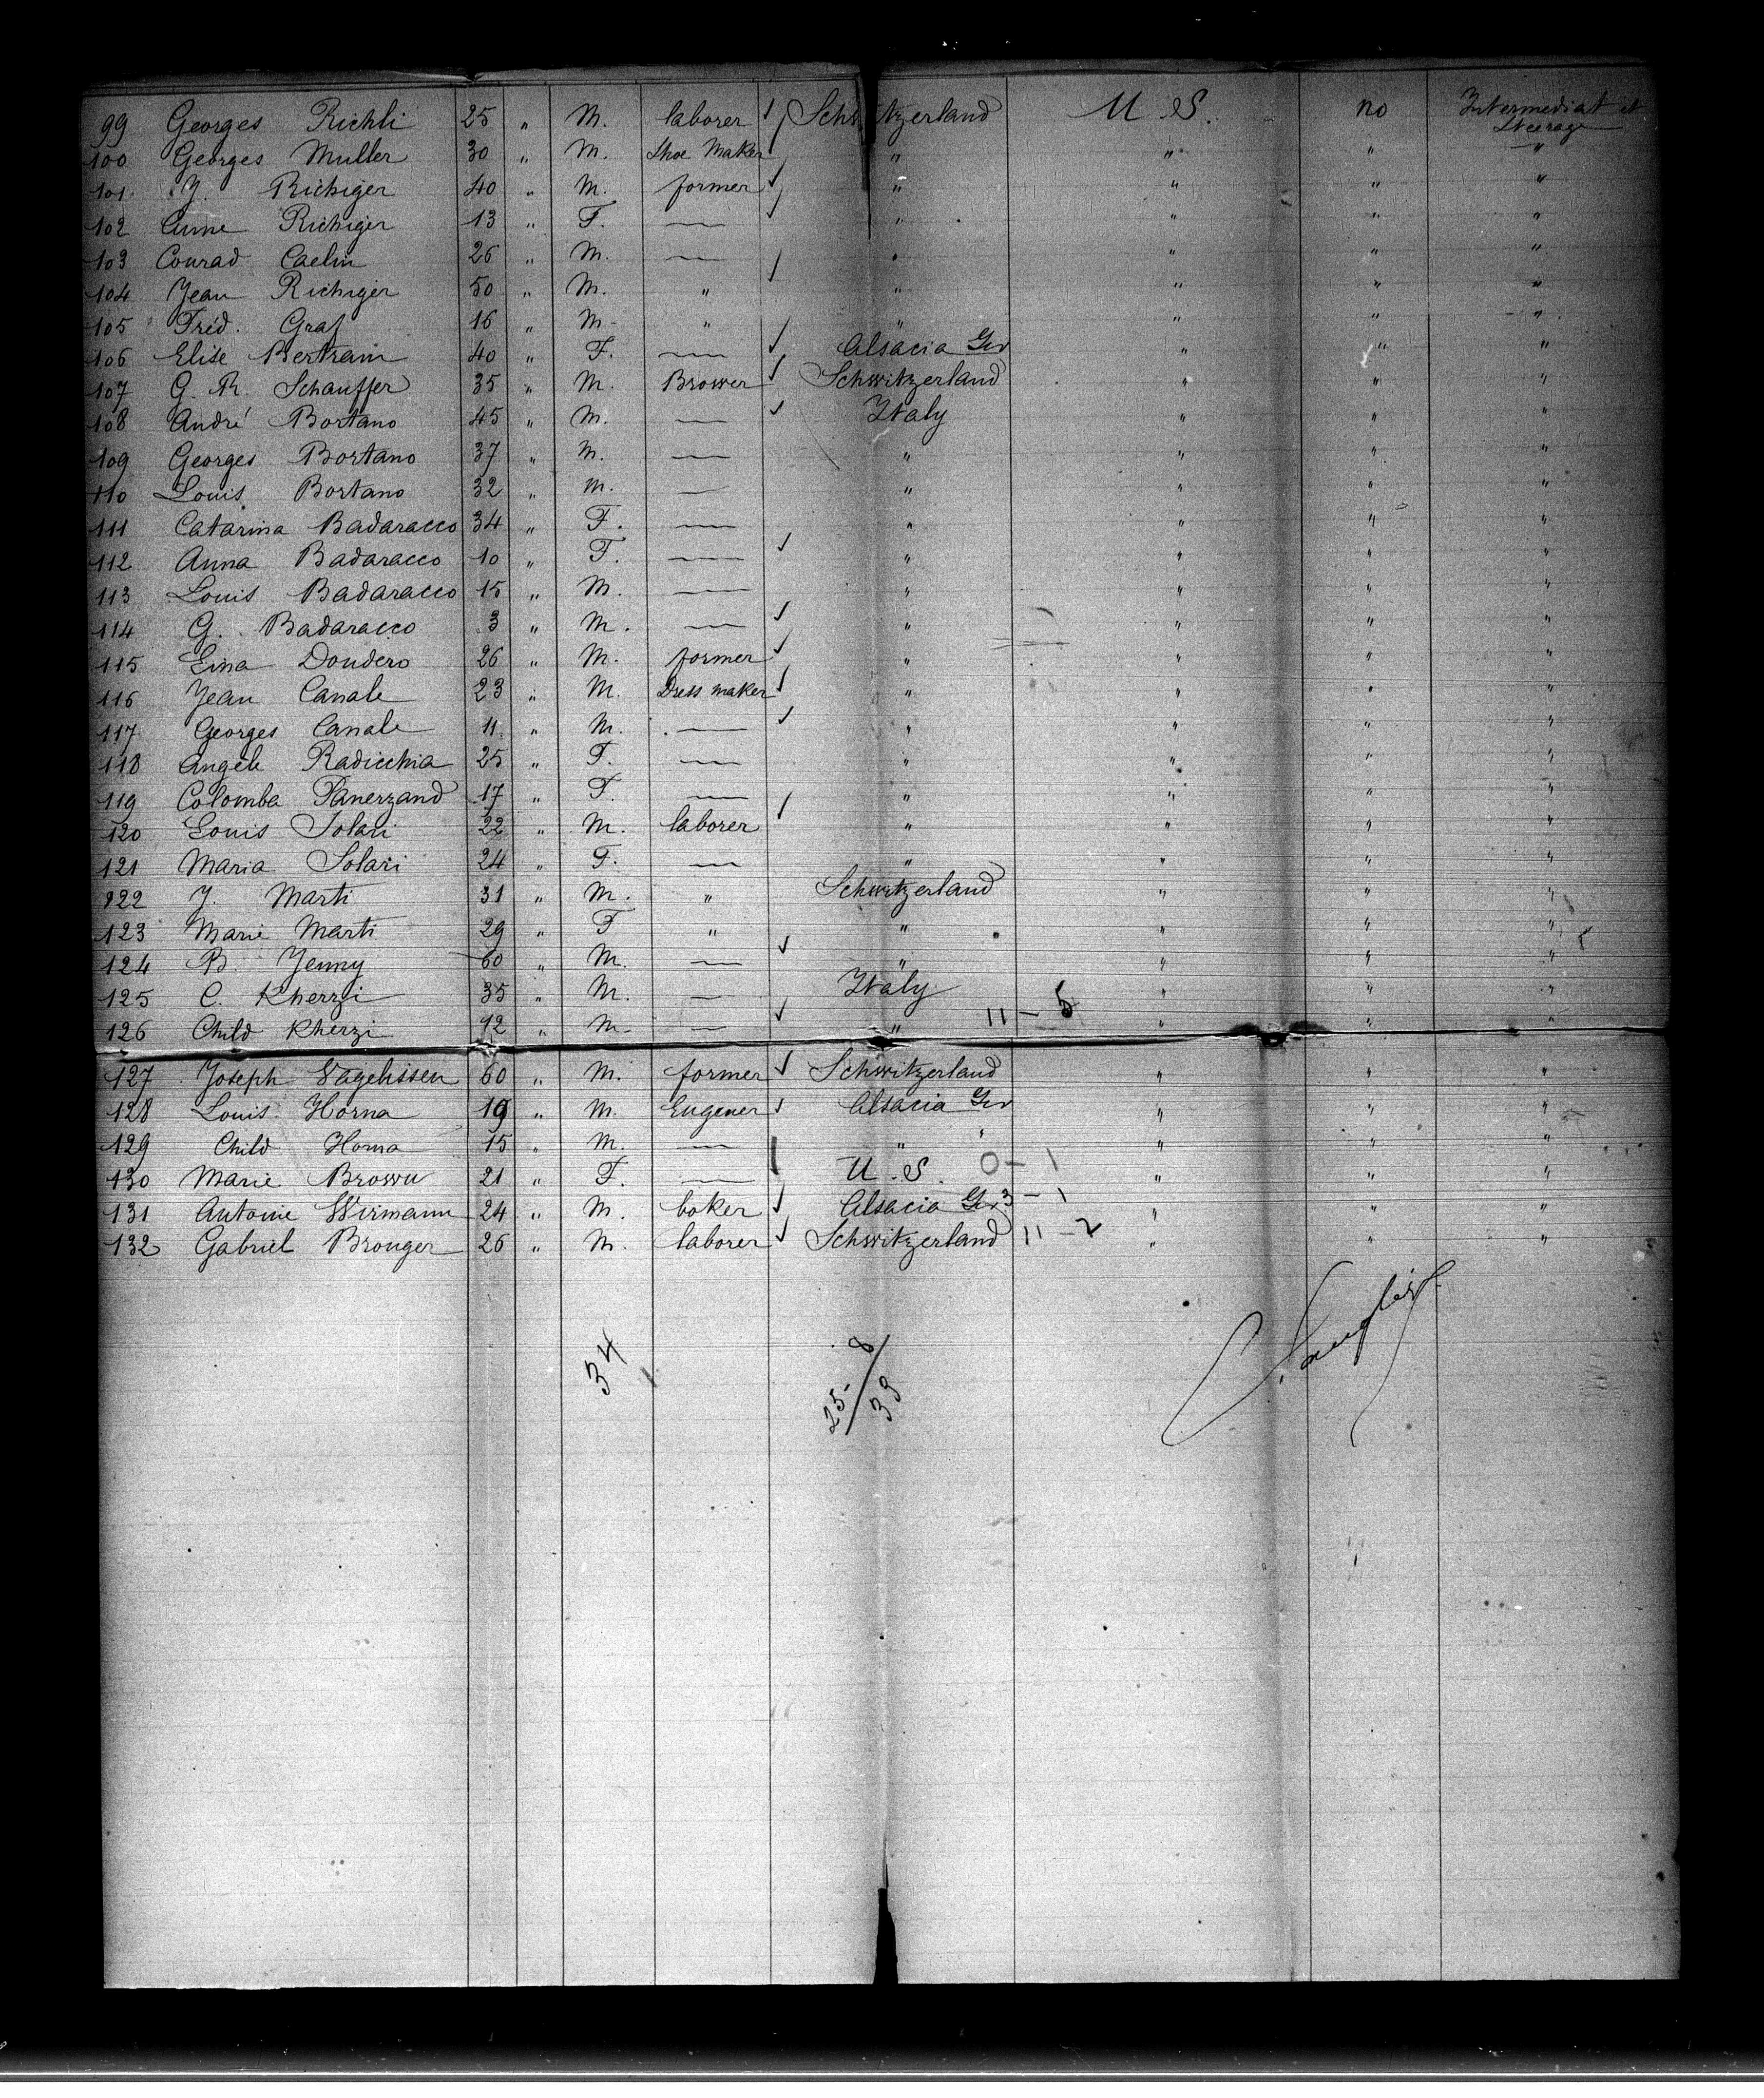 99 Georges Richli 25 " M. laborer Schwitzerland U.S. no Intermediat et Steerage
100 Georges Muller 30 " M. Shoe Maker " " " "
101 J. Richiger 40 " M. former " " " "
102 Anne Richiger 13 " F. — " " " "
103 Conrad Caelin 26 " M. — " " " "
104 Jean Richiger 50 " M. " " " " "
105 Fréd. Graf 16 " M. " " " " "
106 Elise Bertrain 40 " F. — Alsacia Ger " " "
107 G. R. Schauffer 35 " M. Brower Schwitzerland " " "
108 André Bortano 45 " M. — Italy " " "
109 Georges Bortano 37 " M. — " " " "
110 Louis Bortano 32 " M. — " " " "
111 Catarina Badaracco 34 " F. — " " " "
112 Anna Badaracco 10 " F. — " " " "
113 Louis Badaracco 15 " M. — " " " "
114 G. Badaracco 3 " M. — " " " "
115 Lina Doudero 26 " M. former " " " "
116 Jean Canale 23 " M. Dress maker " " " "
117 Georges Canale 11 " M. — " " " "
118 Angèle Radicchia 25 " F. — " " " "
119 Colomba Panerzand 17 " F. — " " " "
120 Louis Solari 22 " M. laborer " " " "
121 Maria Solari 24 " F. — " " " "
122 J. Marti 31 " M. " Schwitzerland " " "
123 Marie Marti 29 " F " " " " "
124 B. Jenny 60 " M. — " " " "
125 C. Kherzi 35 " M. — Italy " " "
126 Child Kherzi 12 " M. — " 11 - 5 " " "
127 Joseph Vagelissen 60 " M. former Schwitzerland " " "
128 Louis Horna 19 " M. Eugener Alsacia Ger " " "
129 Child Horna 15 " M. — " " " " "
130 Marie Browu 21 " F. — U.S. 0 - 1 " " "
131 Antoine Wirmann 24 " M. boker Alsacia Ger 3 - 1 " " "
132 Gabriel Brouger 26 " M. laborer Schwitzerland 11 - 2 " " "
34
25 - 8
33